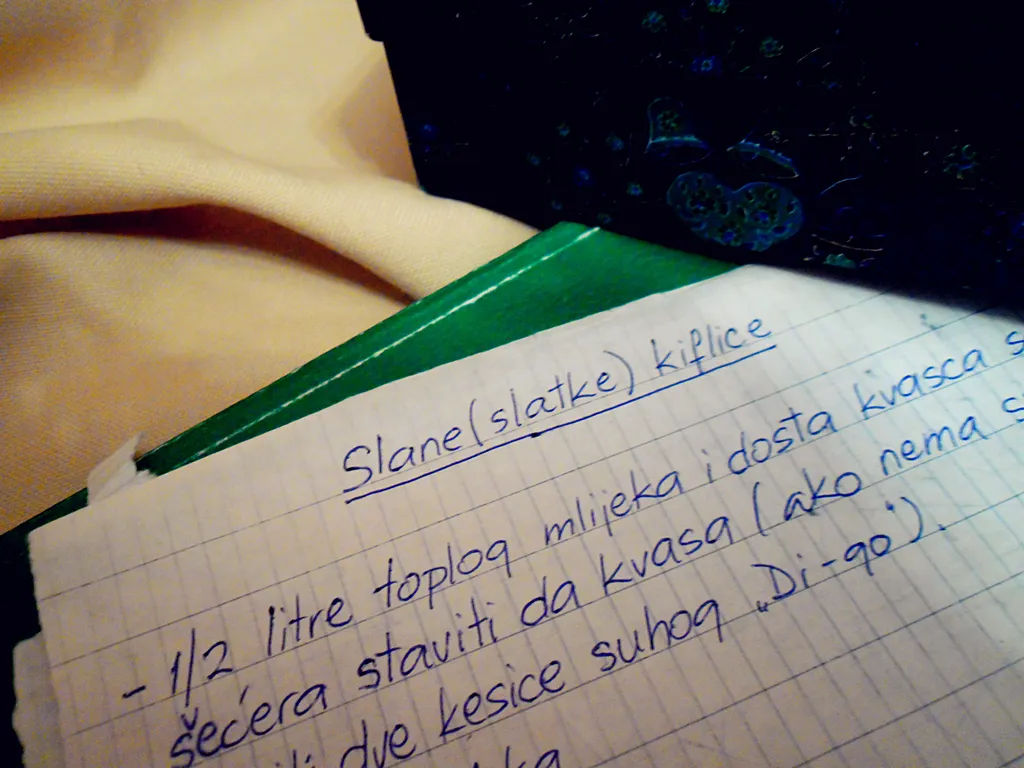 Slane (slatke) kiflice
- 1/2 litre toplog mlijeka i dosta kvasca
šećera staviti da kvasa (ako nema
dve kesice suhog „Di-go").